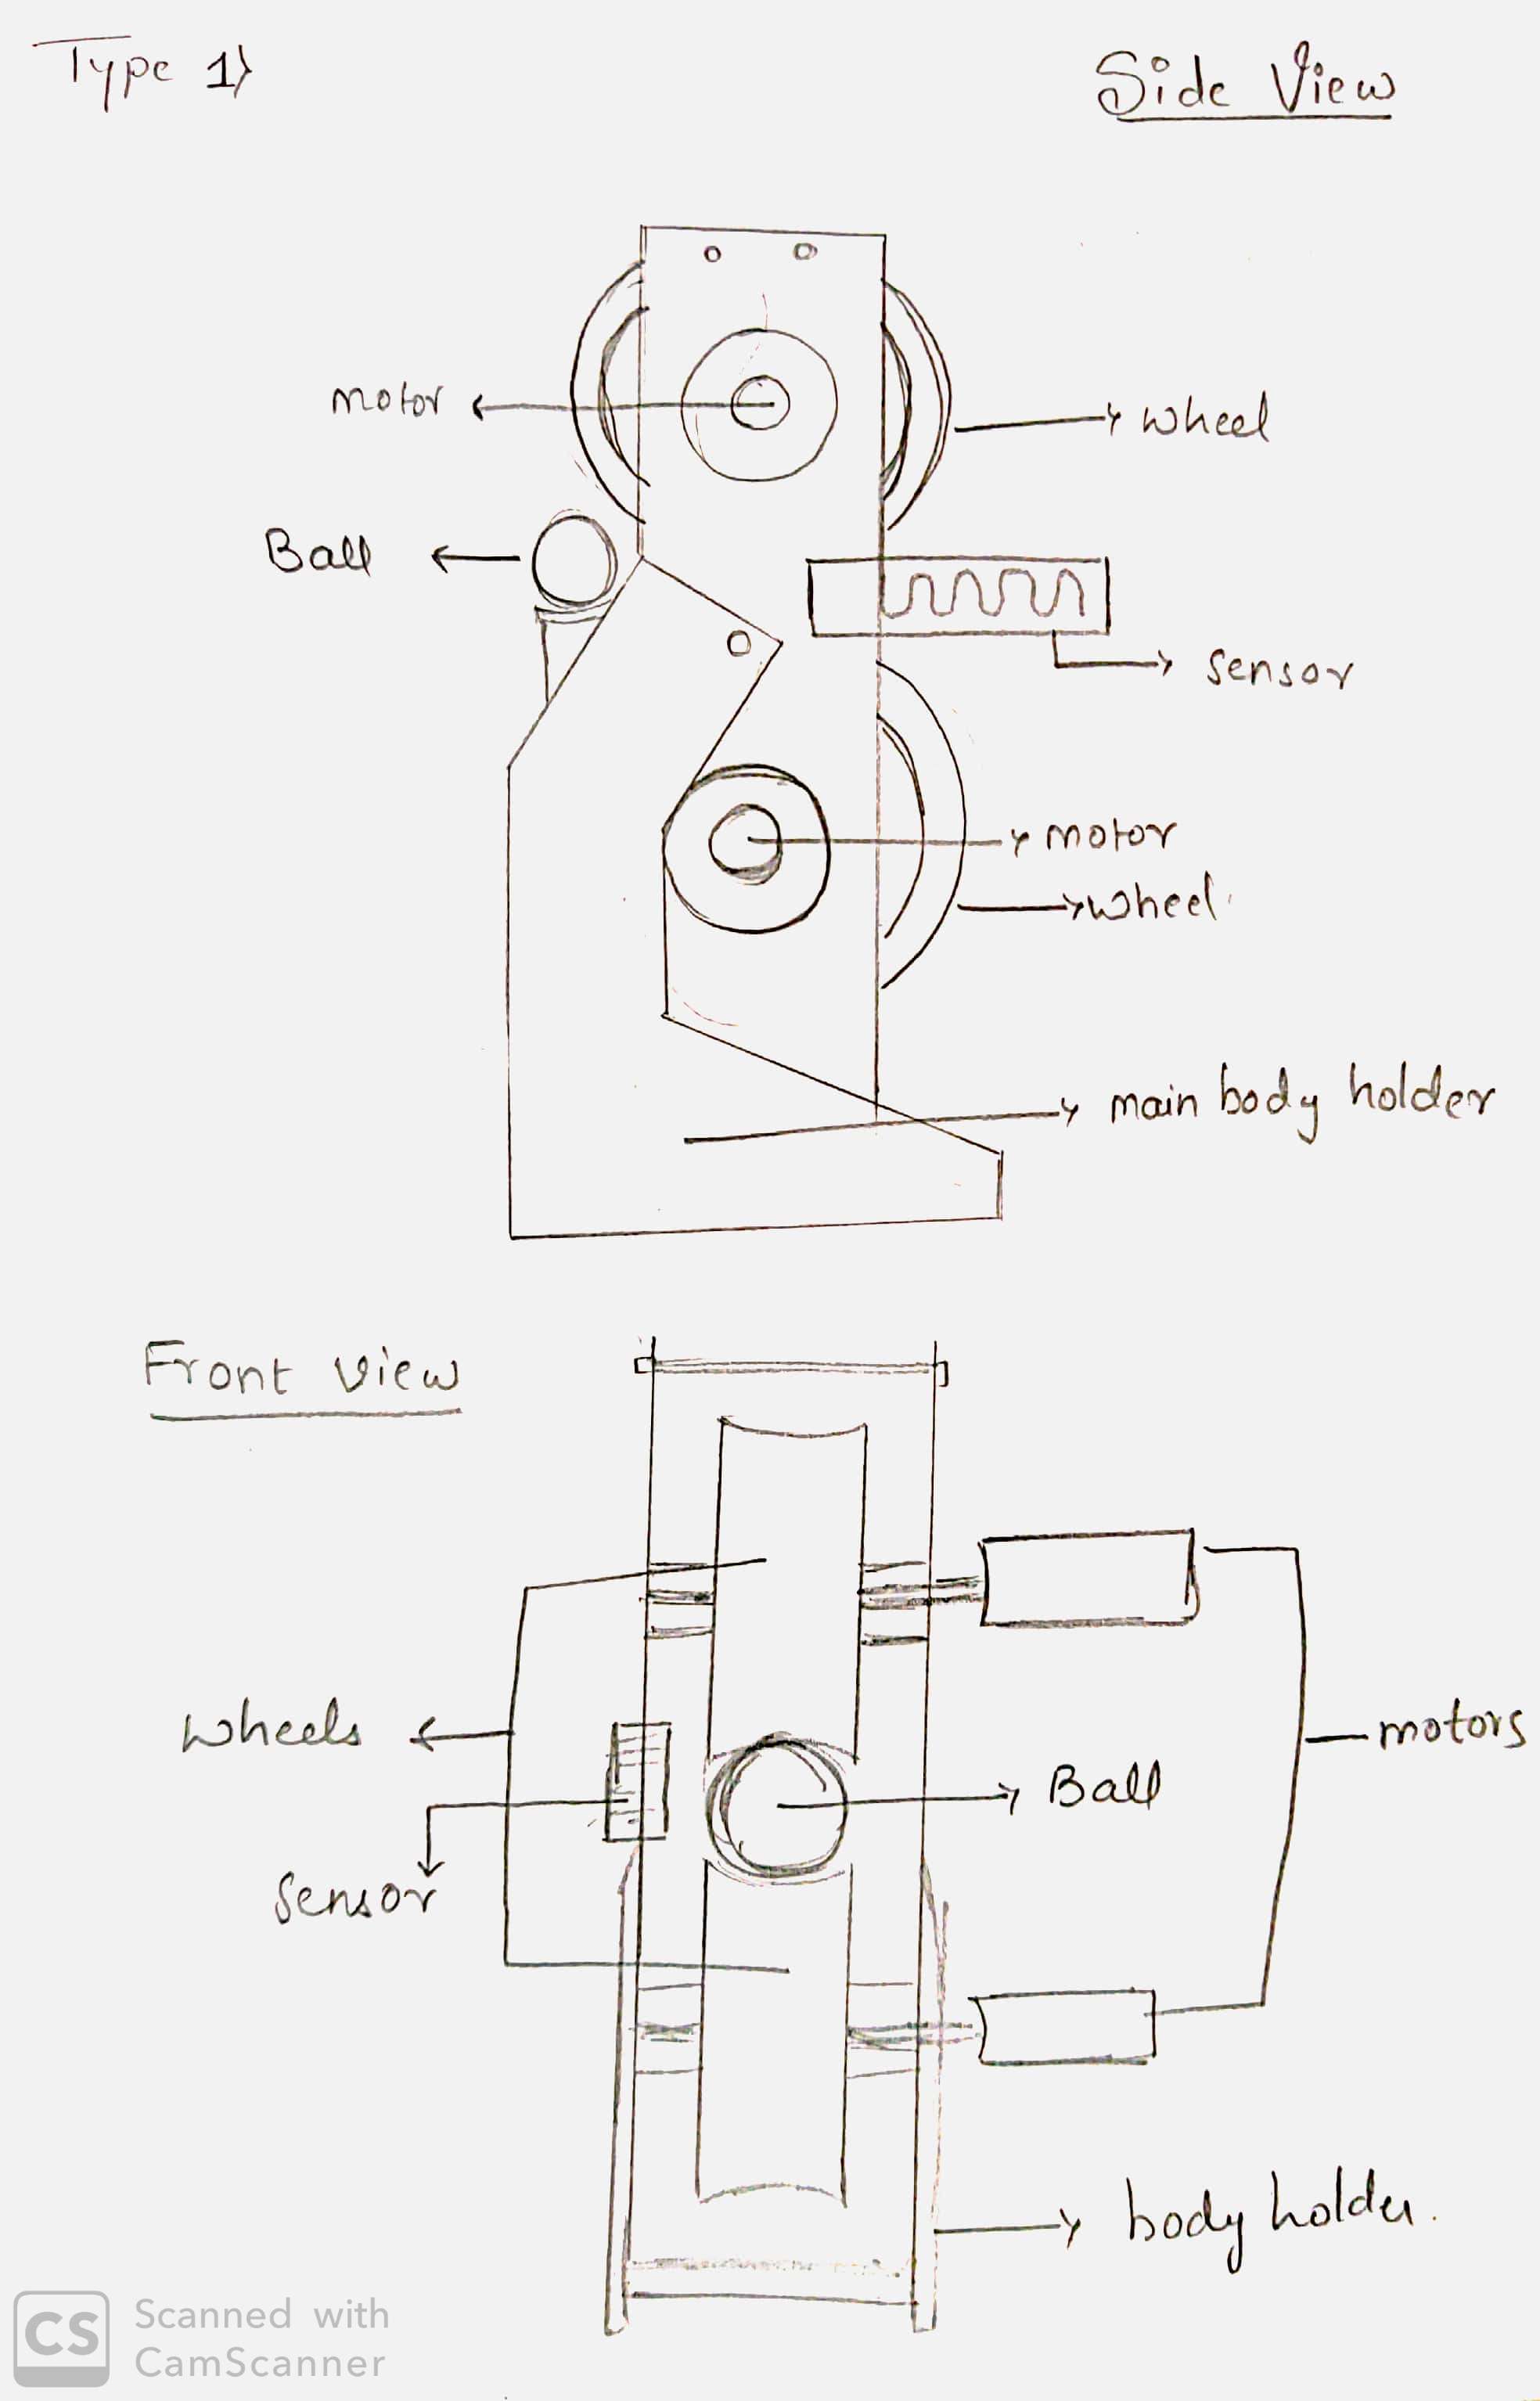 Type 1)
Side View
motor
wheel
Ball
sensor
motor
wheel
main body holder
Front view
wheels
motors
Ball
sensor
body holder.
CS
Scanned with
CamScanner